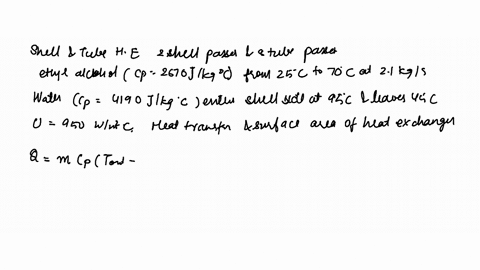 Shell & Tube H.E 2 shell passes & 8 tube passes
ethyl alcohol (Cp = 2670 J/kg°C) from 25°C to 70°C at 2.1 kg/s
Water (Cp = 4190 J/kg°C) enters shell side at 95°C & leaves 45°C
U = 950 W/m²C, Heat transfer & surface area of heat exchanger
Q̇ = m Cp (Tout -